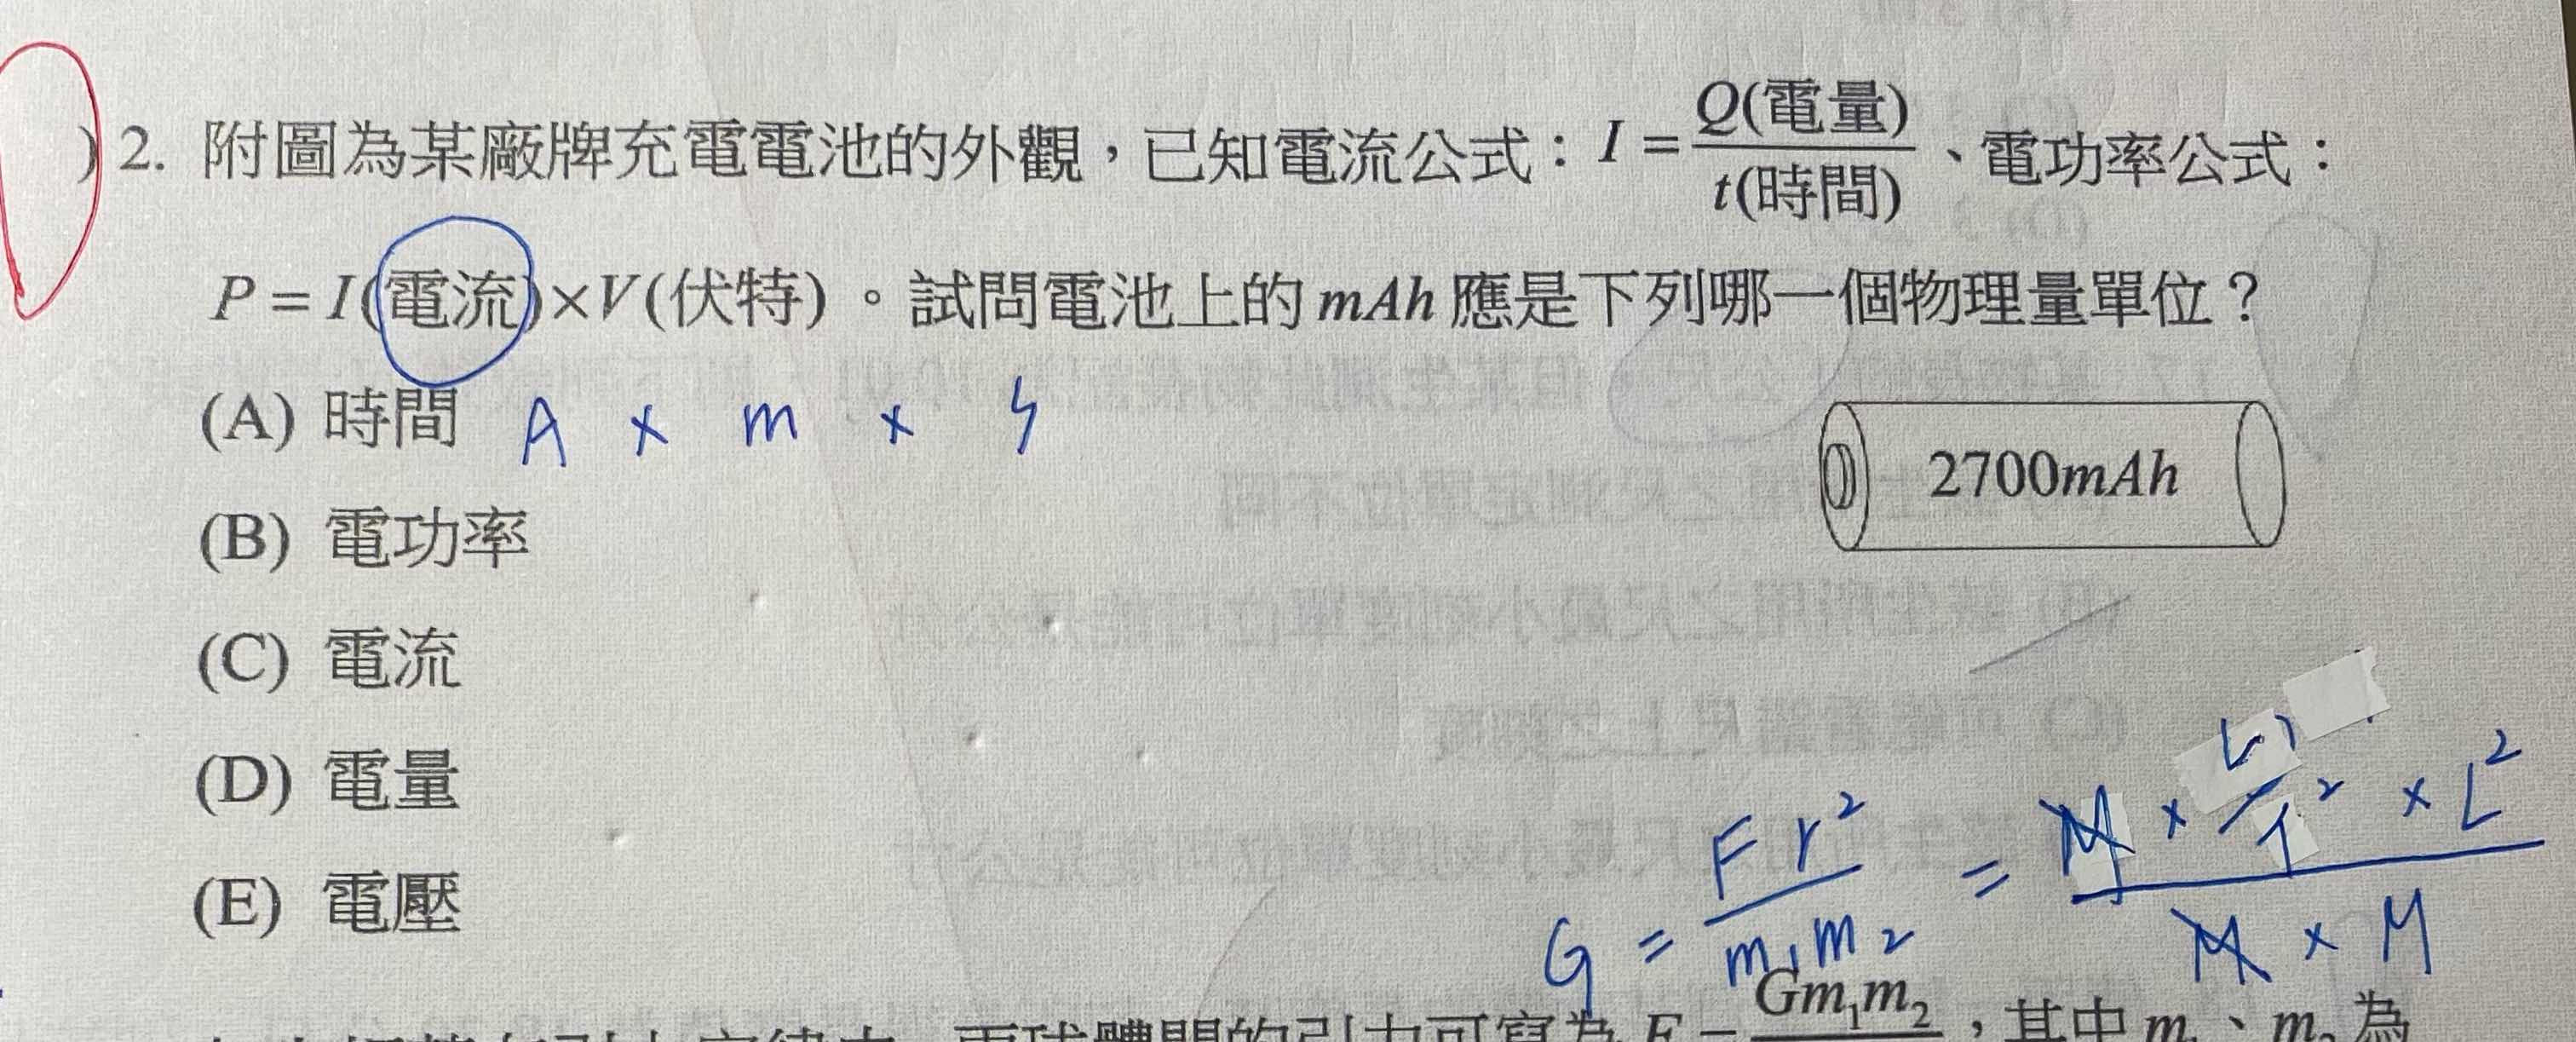 ) 2. 附圖為某廠牌充電電池的外觀，已知電流公式：I = Q(電量) / t(時間)、電功率公式：
P = I(電流)×V(伏特)。試問電池上的 mAh 應是下列哪一個物理量單位？
(A) 時間 A × m ×
2700mAh
(B) 電功率
(C) 電流
(D) 電量
(E) 電壓
G = F r² / m₁m₂ = M × L / T² × L² / M × M
兩球體間的引力可寫為 F = Gm₁m₂，其中 m₁、m₂ 為